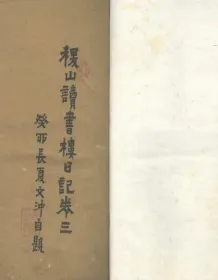 稷山讀書樓日記卷三
癸卯長夏文沖自題